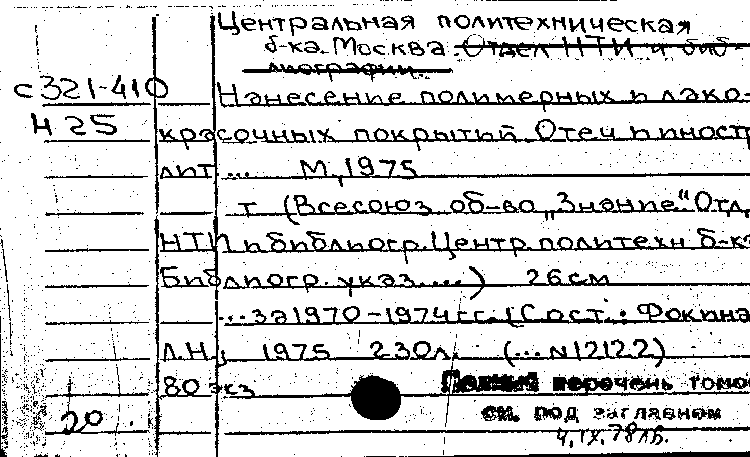 Центральная политехническая
б-ка. Москва. Отдел НТИ и биб-
лиографии.
с 321-410 Нанесение полимерных и лако-
Н 25 красочных покрытий. Отеч и иностр
лит ... М, 1975
т (Всесоюз об-во „Знание“ Отд.
НТИ и библиогр. Центр политехн б-ка
Библиогр. указ ....) 26 см
...за 1970-1974 гг. (Сост.: Фокина
Л.Н., 1975 230 л. (... N 12122)
80 экз
Полный перечень томов
см. под заглавием
20
4.IX.78